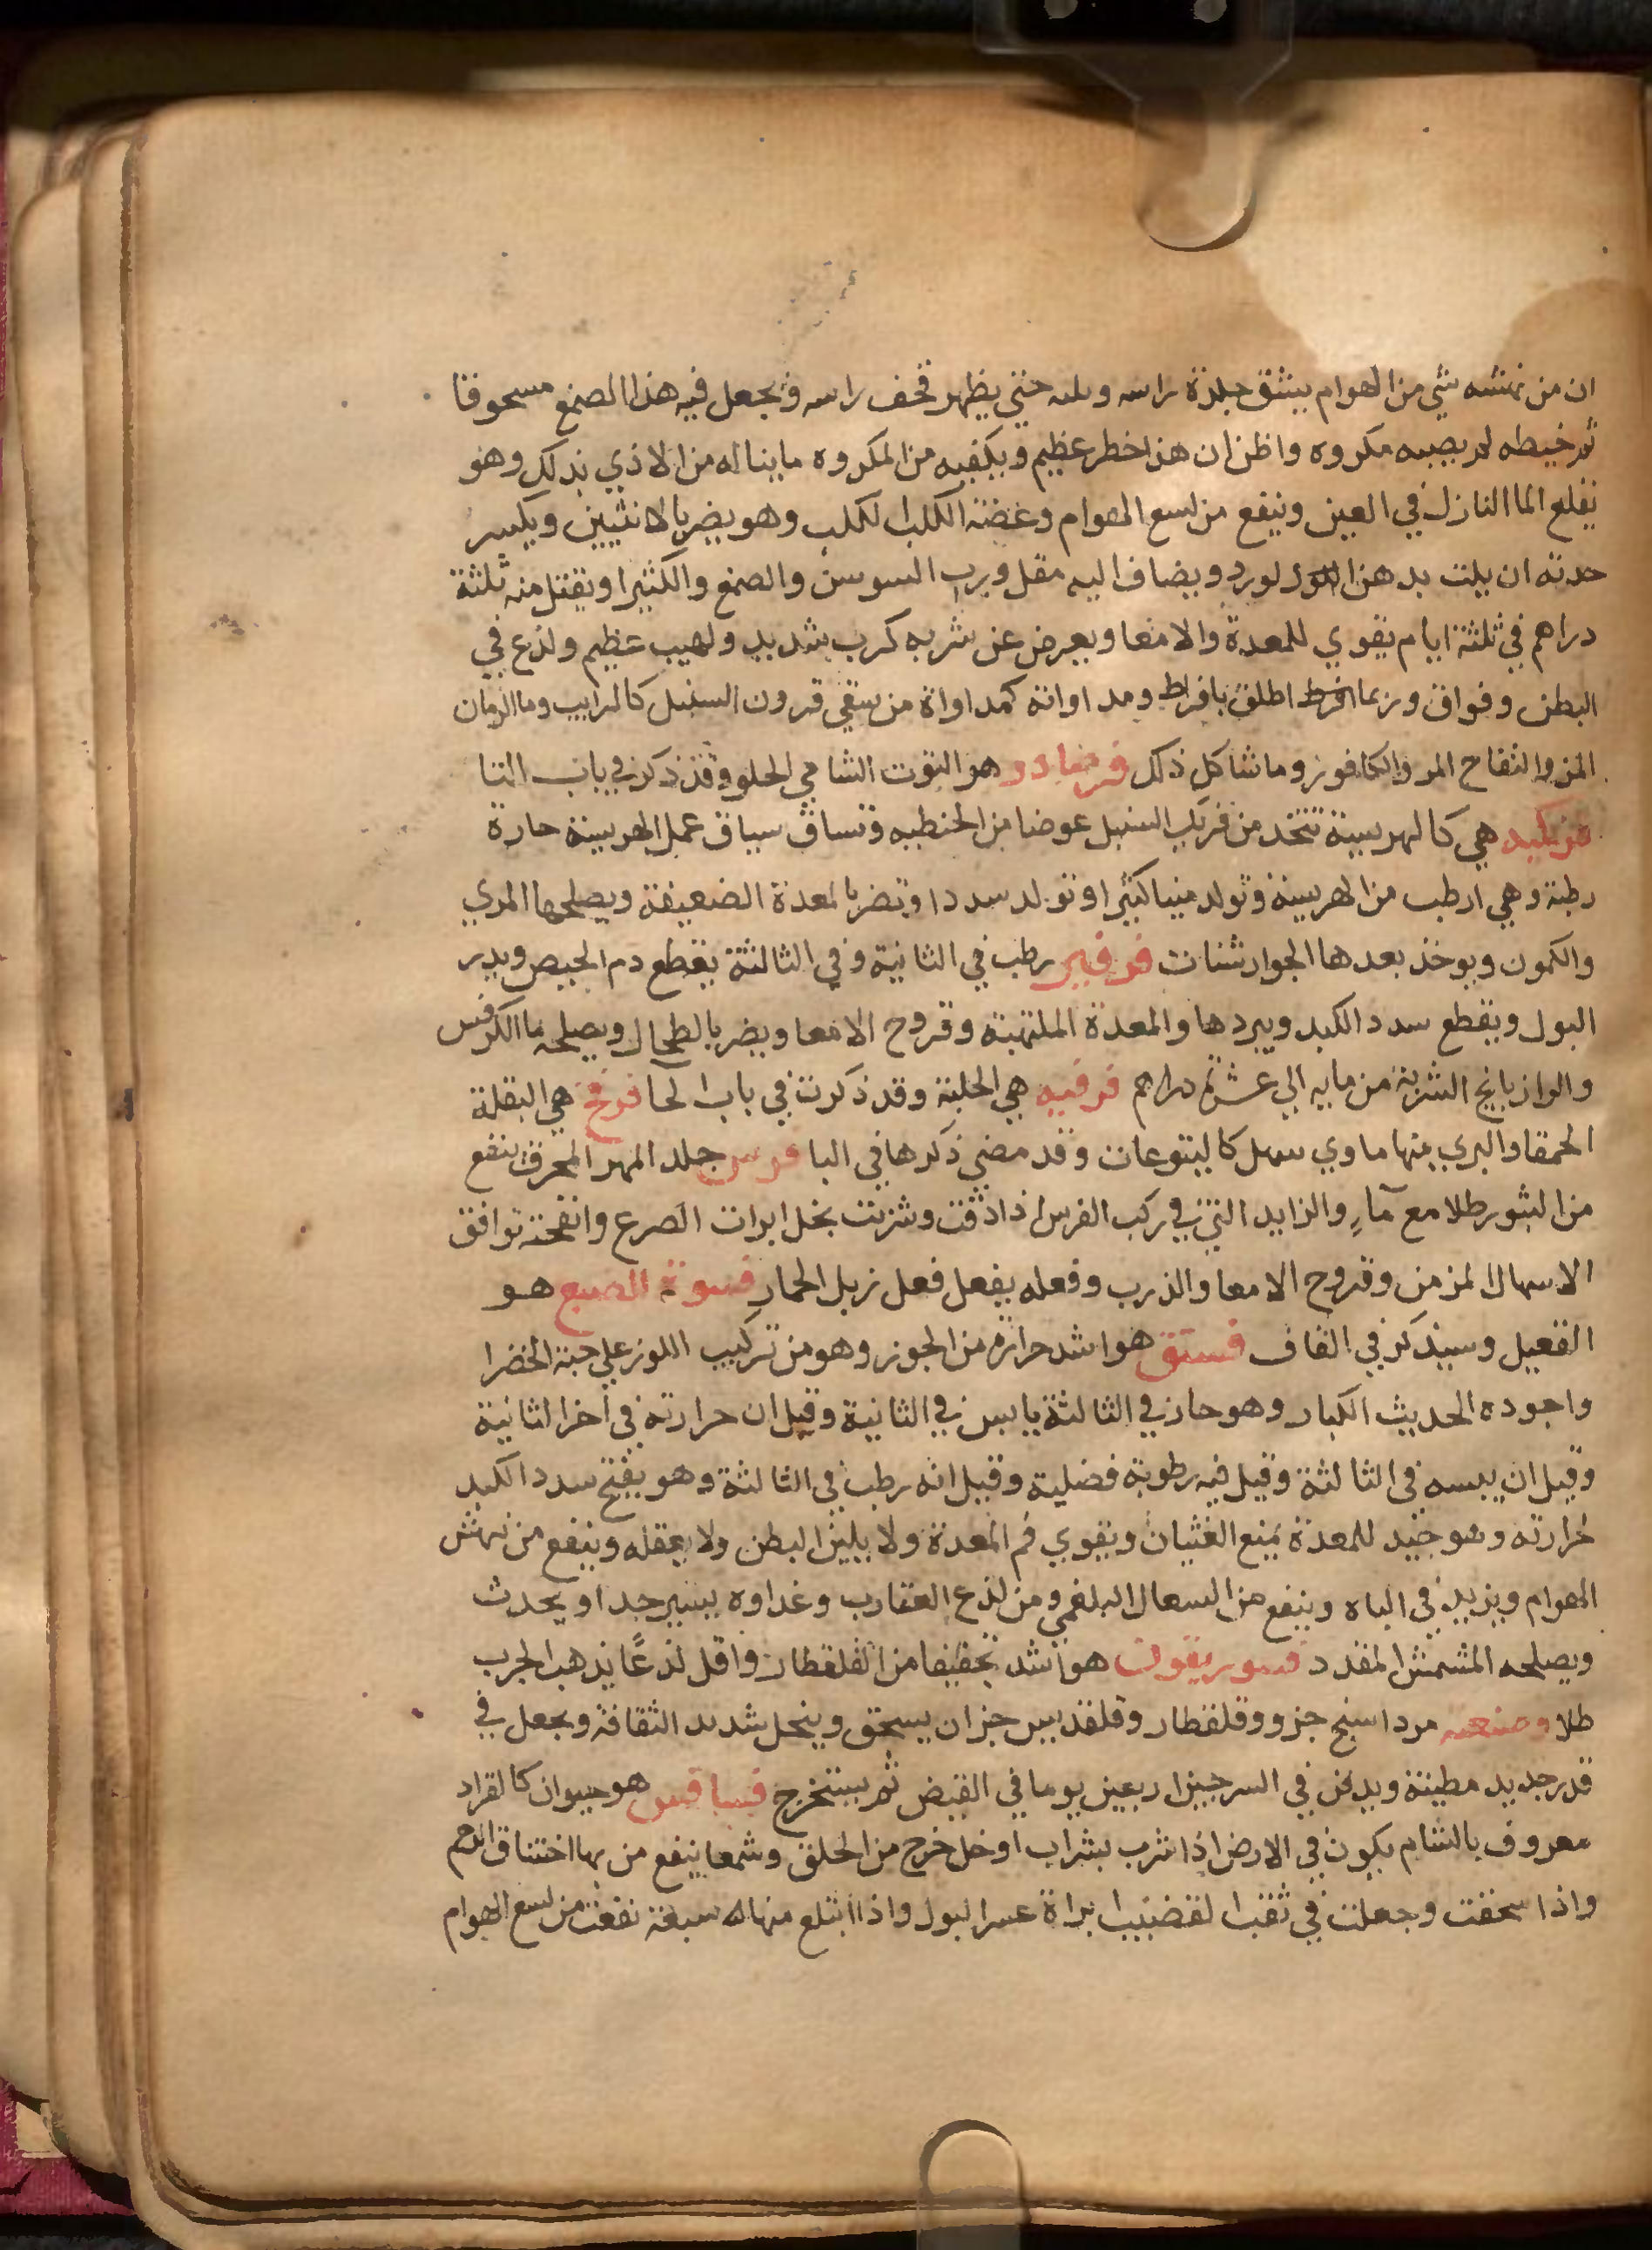 ان من نهشه شي من الهوام يشق جلدة راسه ويليه حتي يظهر قحف راسه ويجعل فيه هذا الصمغ مسحوقا
ثم خيطه لم يصبه مكروه واظن ان هذا خطر عظيم ويكفيه من المكروه ما يناله من الاذي بذلك وهو
يقلع الما النازل في العين وينفع من لسع الهوام وعضة الكلب الكلب وهو يضر بالانثيين ويكسر
حدته ان يلت بدهن الورد ويضاف اليه مقل ورب السوس والصمغ والكثيرا ويقتل منه ثلثة
دراهم في ثلثة ايام تقوي للمعدة والامعا ويعرض عن شربه كرب شديد ولهيب عظيم ولذع في
البطن وفواق وربما افرط اطلق بافراط ومداواته كمداواة من سقي قرون السنبل كالرايب وما الرمان
المز والتفاح المر والكافور وما شاكل ذلك فرصادر هو التوت الشامي الحلو وقد ذكر في باب التا
فريكيه هي كالهريسة تتخد من فريك السنبل عوضا من الحنطيه وتساق سياق عمل الهريسة حارة
رطبة وهي ارطب من الهريسة وتولد منيا كثيرا وتولد سددا وتضر بالمعدة الضعيفة ويصلحها المري
والكمون ويوخذ بعدها الجوارشنات فرفير رطب في الثانية وفي الثالثة يقطع دم الحيض ويدر
البول ويقطع سدد الكبد ويبردها والمعدة الملتهبة وقروح الامعا ويضر بالطحال ويصلحه ما الكرفس
والرازيانج الشربة من مايه الي عشرة دراهم فرقيه هي الحلبة وقد ذكرت في باب الحا فرفخ هي البقلة
الحمقا والبري منها ماوي سهل كاليتوعات وقد مضي ذكرها في البا فرس جلد المهر المحرق ينفع
من البثور طلا مع مآءٍ والزايد التي في ركب الفرس اذا دقت وشربت بخل ابرات الصرع وانفحته توافق
الاسهال المزمن وقروح الامعا والذرب وفعله يفعل فعل زبل الحمار فسوة الضبع هو
القعبل وسيذكر في القاف فستق هو اشد حرارة من الجوز وهو من تركيب اللوز علي حبة الخضرا
واجوده الحديث الكبار وهو حار في الثالثة يابس في الثانية وقيل ان حرارته في اخر الثانية
وقيل ان يبسه في الثالثة وقيل فيه رطوبة فضلية وقيل انه رطب في الثالثة وهو يفتح سدد الكبد
لحرارته وهو جيد للمعدة يمنع الغثيان ويقوي فم المعدة ولا يلين البطن ولا يعقله وينفع من نهش
الهوام ويزيد في الباه وينفع من السعال البلغمي ومن لذع العقارب وغذاوه يسير جدا ويحدث
ويصلحه المشمش المقدد فسوريقون هو اشد تجفيفا من القلقطار واقل لذعًا يذهب الجرب
طلا وصنعته مرداسنج جزو وقلقطار وقلقديس جزان يسحق وينخل شديد الثقافة ويجعل في
قدر جديد مطينة ويدفن في السرجين اربعين يوما في القيض ثم يستخرج فسافس هو حيوان كالقراد
معروف بالشام يكون في الارض اذا شرب بشراب او خل خرج من الحلق وشمها ينفع من بها اختناق الرحم
واذا سحقت وجعلت في ثقب القضيب ابراة عسر البول واذا ابتلع منها له سبعة نفعت من لسع الهوام